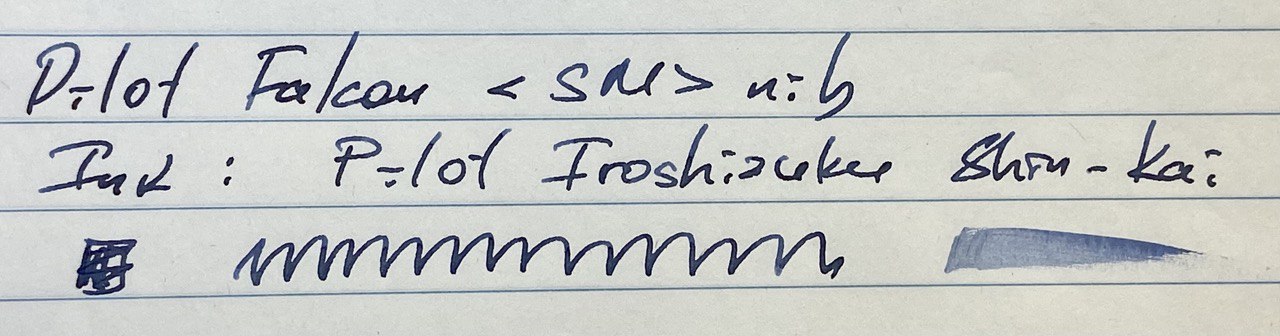 Pilot Falcon <SM> nib
Ink: Pilot Iroshizuku Shin-Kai